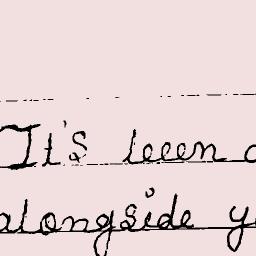 It's been
alongside